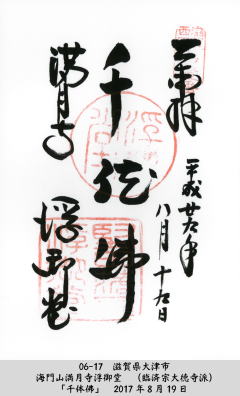 奉拝
平成廿九年
八月十九日
千体佛
満月寺
浮御堂
06-17 滋賀県大津市
海門山満月寺浮御堂 (臨済宗大徳寺派)
「千体佛」 2017年8月19日